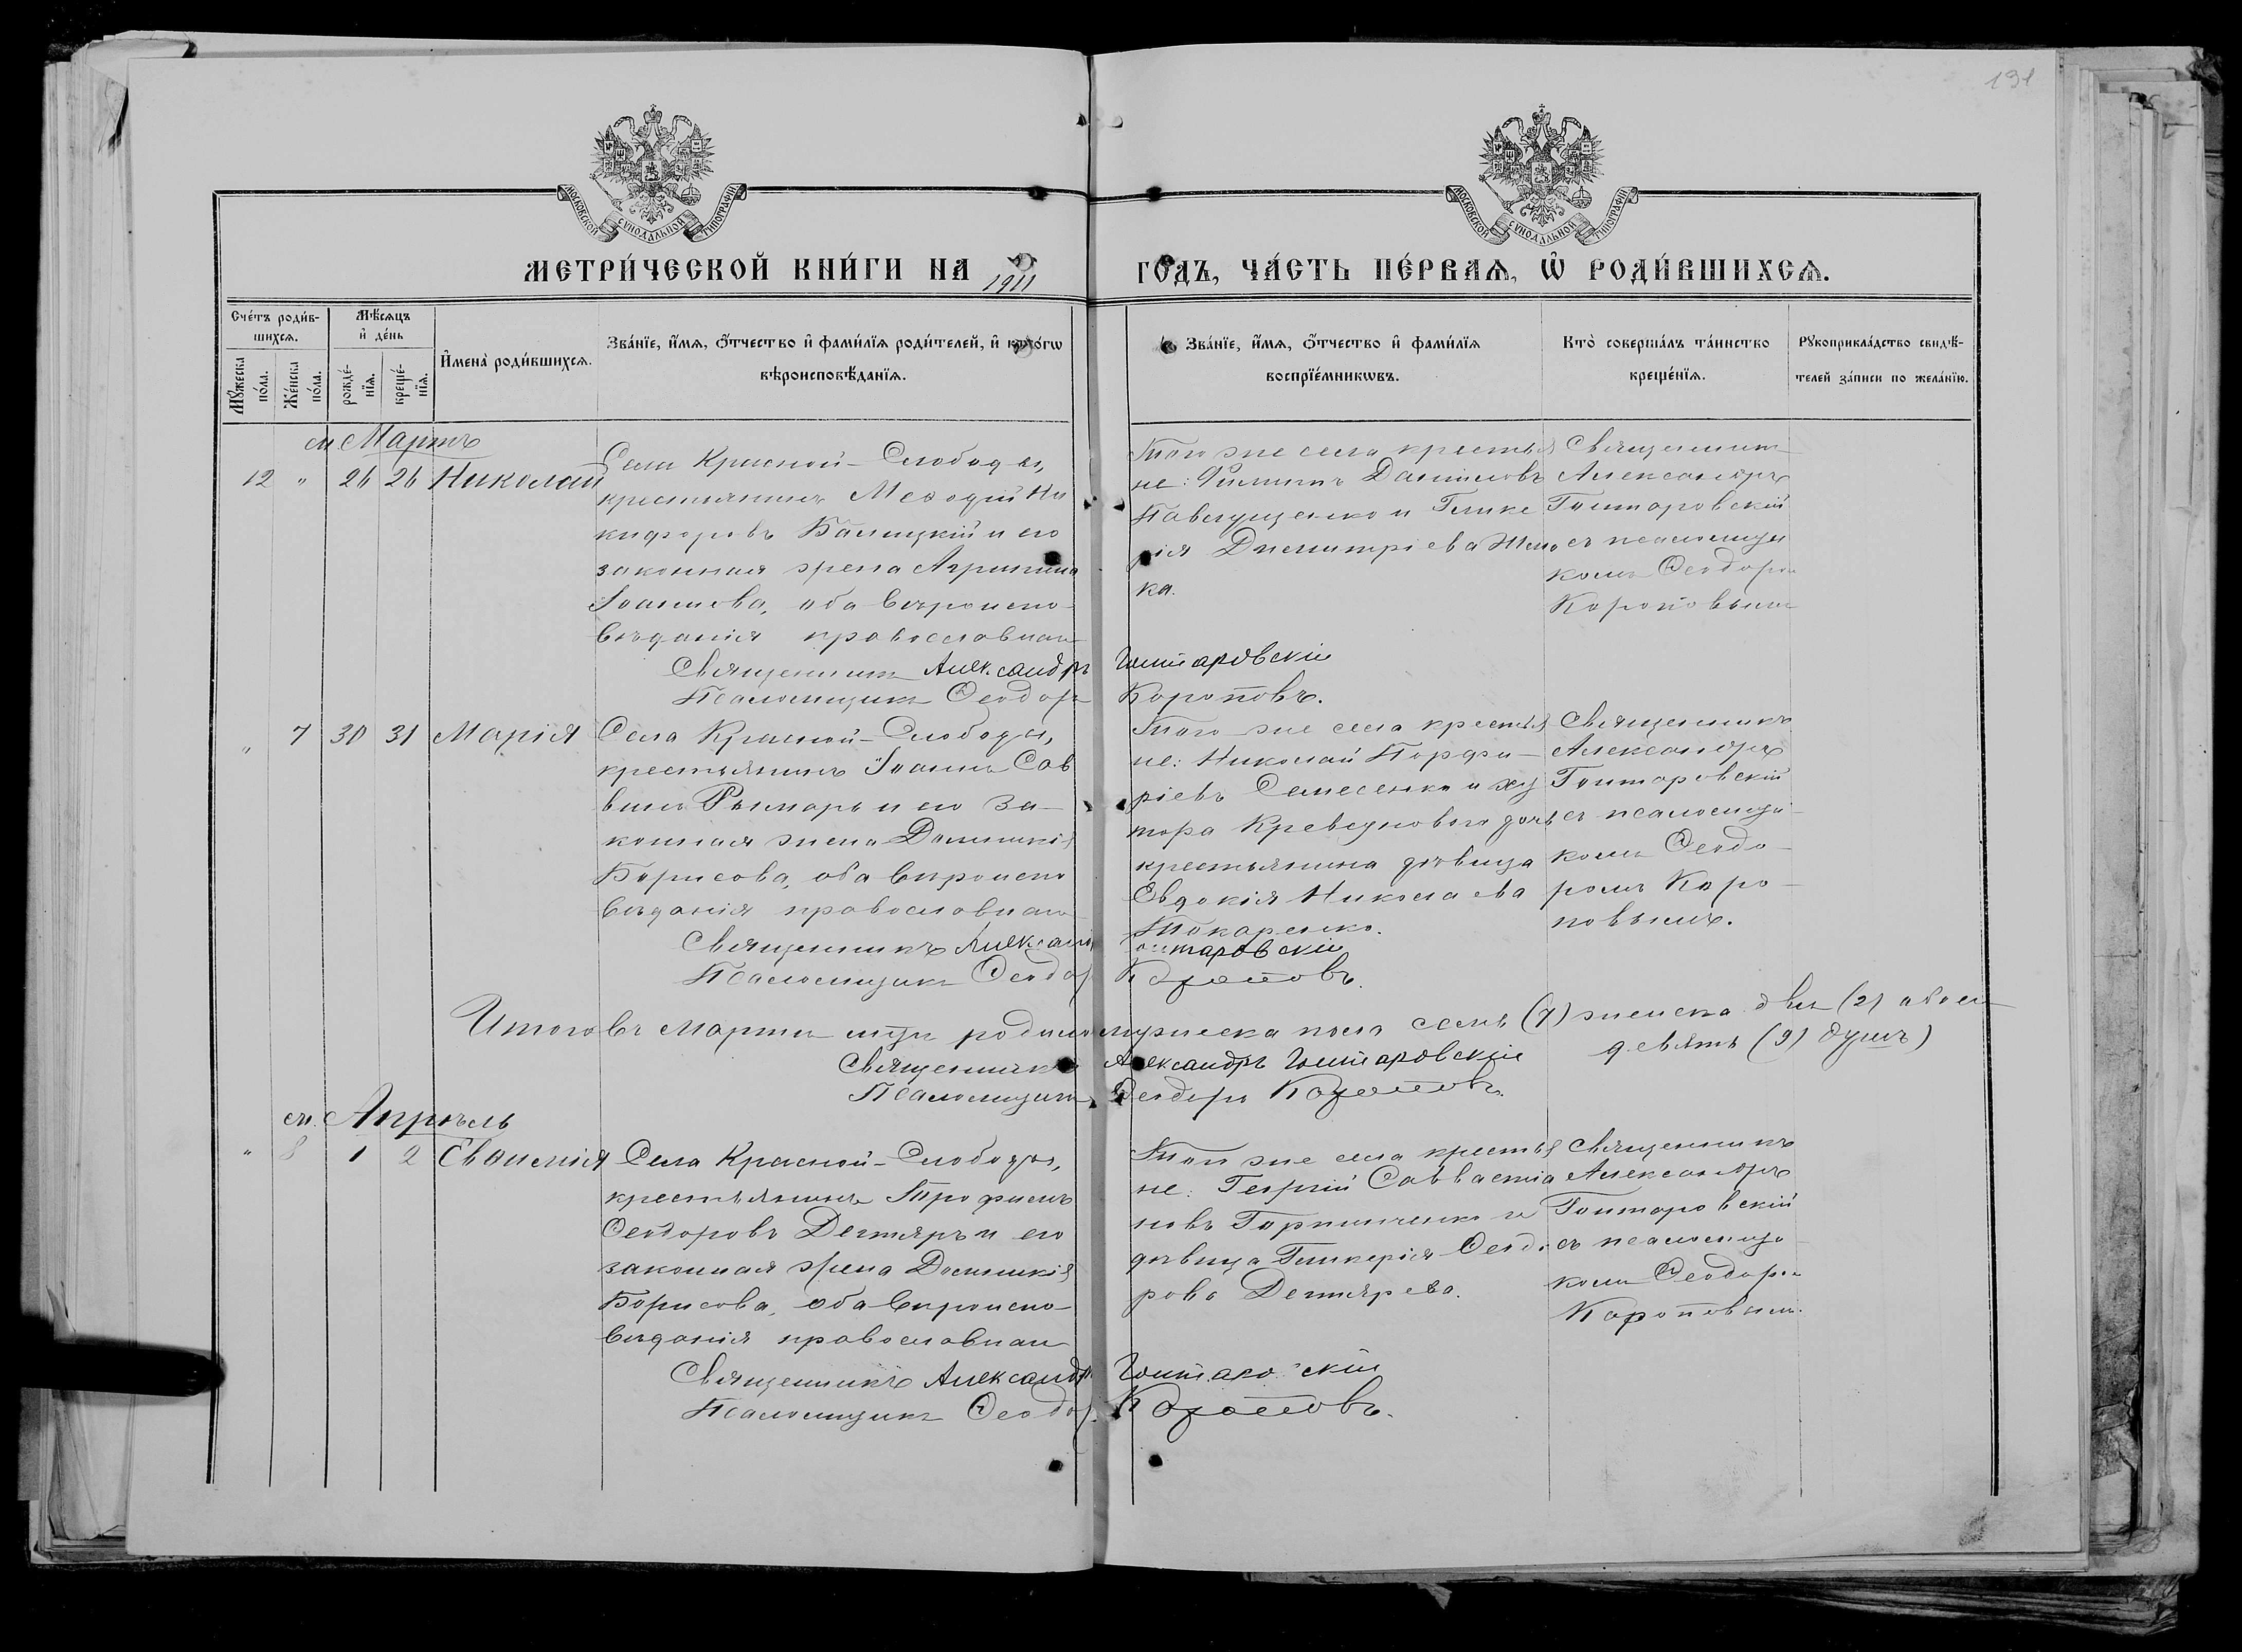 191
МОСКОВСКОЙ СѴНОДАЛЬНОЙ ТИПОГРАФІИ
МОСКОВСКОЙ СѴНОДАЛЬНОЙ ТИПОГРАФІИ
МЕТРИ́ЧЕСКОЙ КНИ́ГИ НА 1911
ГО́ДЪ, ЧА́СТЬ ПЕ́РВАѦ, Ѡ҆ РОДИ́ВШИХСѦ.
Сче́тъ роди́в-
шихсѧ.
Мꙋ́жеска по́ла.
Же́нска по́ла.
Мѣ́сѧцъ
и҆ де́нь
рожде́-
нїѧ.
креще́-
нїѧ.
И҆мена̀ роди́вшихсѧ.
Зва́нїе, и҆́мѧ, ѻ҆́тчество и҆ фами́лїѧ роди́телей, и҆ кото́рагѡ
вѣроисповѣ́данїѧ.
Зва́нїе, и҆́мѧ, ѻ҆́тчество и҆ фами́лїѧ
воспрїе́мникѡвъ.
Кто̀ соверша́лъ та́инство
креще́нїѧ.
Рꙋкоприкла́дство свидѣ́-
телей за́писи по жела́нїю.
м. Мартъ
12 " 26 26 Николай
Села Красной-Слободы,
крестьянинъ Меѳодій Ни
кифоровъ Балицкій и его
законная жена Агрипина
Іоаннова, оба вѣроиспо-
вѣданія православнаго
Священникъ Александръ
Псаломщикъ Ѳеодоръ
Того же села крестья
не: Филиппъ Даниловъ
Павлущенко и Глике
рія Димитріева
ка.
Священникъ
Александръ
Гонтаровскій
съ псаломщи
комъ Ѳеодором
Короповымъ
Гонтаровскій
Короповъ.
" 7 30 31 Марія
Села Красной-Слободы,
крестьянинъ Іоаннъ Сав
винъ Рымарь и его за-
конная жена Домникія
Борисова, оба вѣроиспо
вѣданія православнаго
Священникъ Александръ
Псаломщикъ Ѳеодоръ
Того же села крестья
не: Николай Порфи-
ріевъ Семесенко и ху
тора дочь
крестьянина дѣвица
Евдокія Николаева
Токаренко.
Священникъ
Александръ
Гонтаровскій
съ псаломщи
комъ Ѳеодо-
ромъ Коро-
повымъ.
Гонтаровскій
Короповъ.
Итого въ Мартѣ м-цѣ родилось мужеска пола семь (7) женска двѣ (2) обоего
девять (9) душъ)
Священникъ Александръ Гонтаровскій
Псаломщикъ Ѳеодоръ Короповъ.
м. Апрѣль
" 8 1 2 Евѳимія
Села Красной-Слободы,
крестьянинъ Трофимъ
Ѳеодоровъ Дегтяръ и его
законная жена Домникія
Борисова, оба вѣроиспо-
вѣданія православнаго
Священникъ Александръ
Псаломщикъ Ѳеодоръ
Того же села крестья
не: Георгій Савватіа
новъ Горпинченко и
дѣвица Гликерія Ѳеодо
рова Дегтярева.
Священникъ
Александръ
Гонтаровскій
съ псаломщи
комъ Ѳеодоромъ
Короповымъ.
Гонтаровскій
Короповъ.